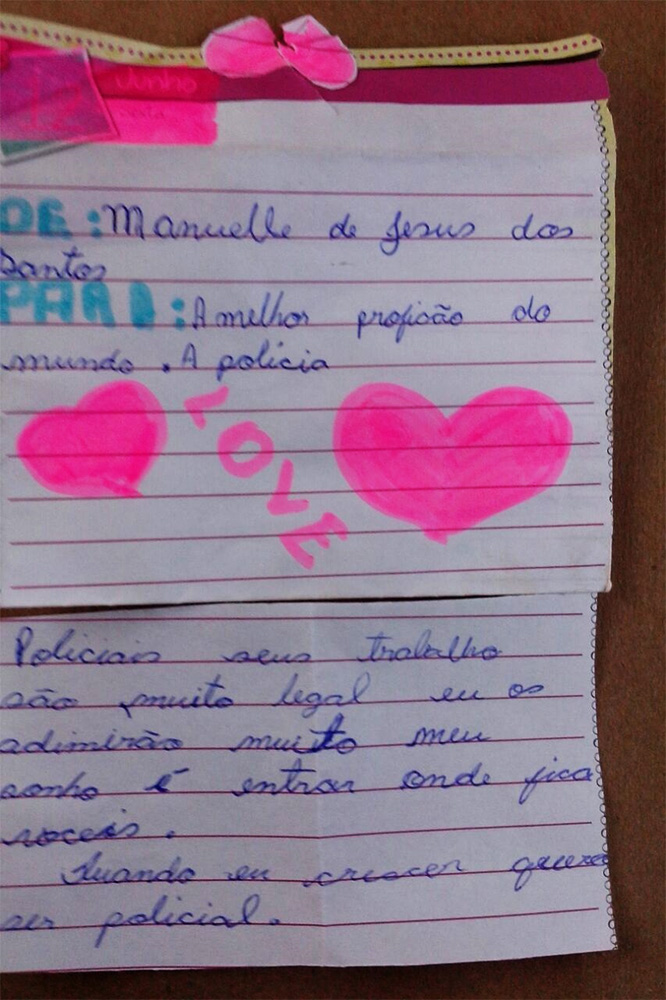 12 Junho
sexta
DE: Manuelle de Jesus dos
Santos
PARA: A melhor proficão do
mundo. A policia
LOVE
Policiais seus trabalho
são muito legal eu os
adimirão muito meu
sonho é entrar onde fica
voceis.
Quando eu crescer quero
ser policial.